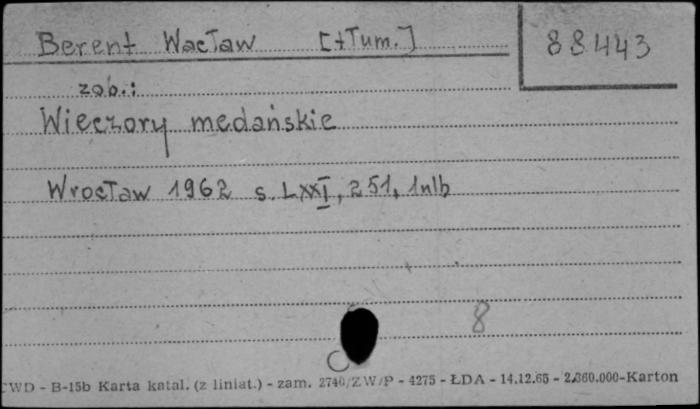 Berent Wacław [tłum.] 88443
zob.:
Wieczory medańskie
Wrocław 1962 s. LXXI, 251, 1nlb
8
CWD - B-15b Karta katal. (z liniat.) - zam. 2740/ZW/P - 4275 - ŁDA - 14.12.65 - 2.360.000-Karton